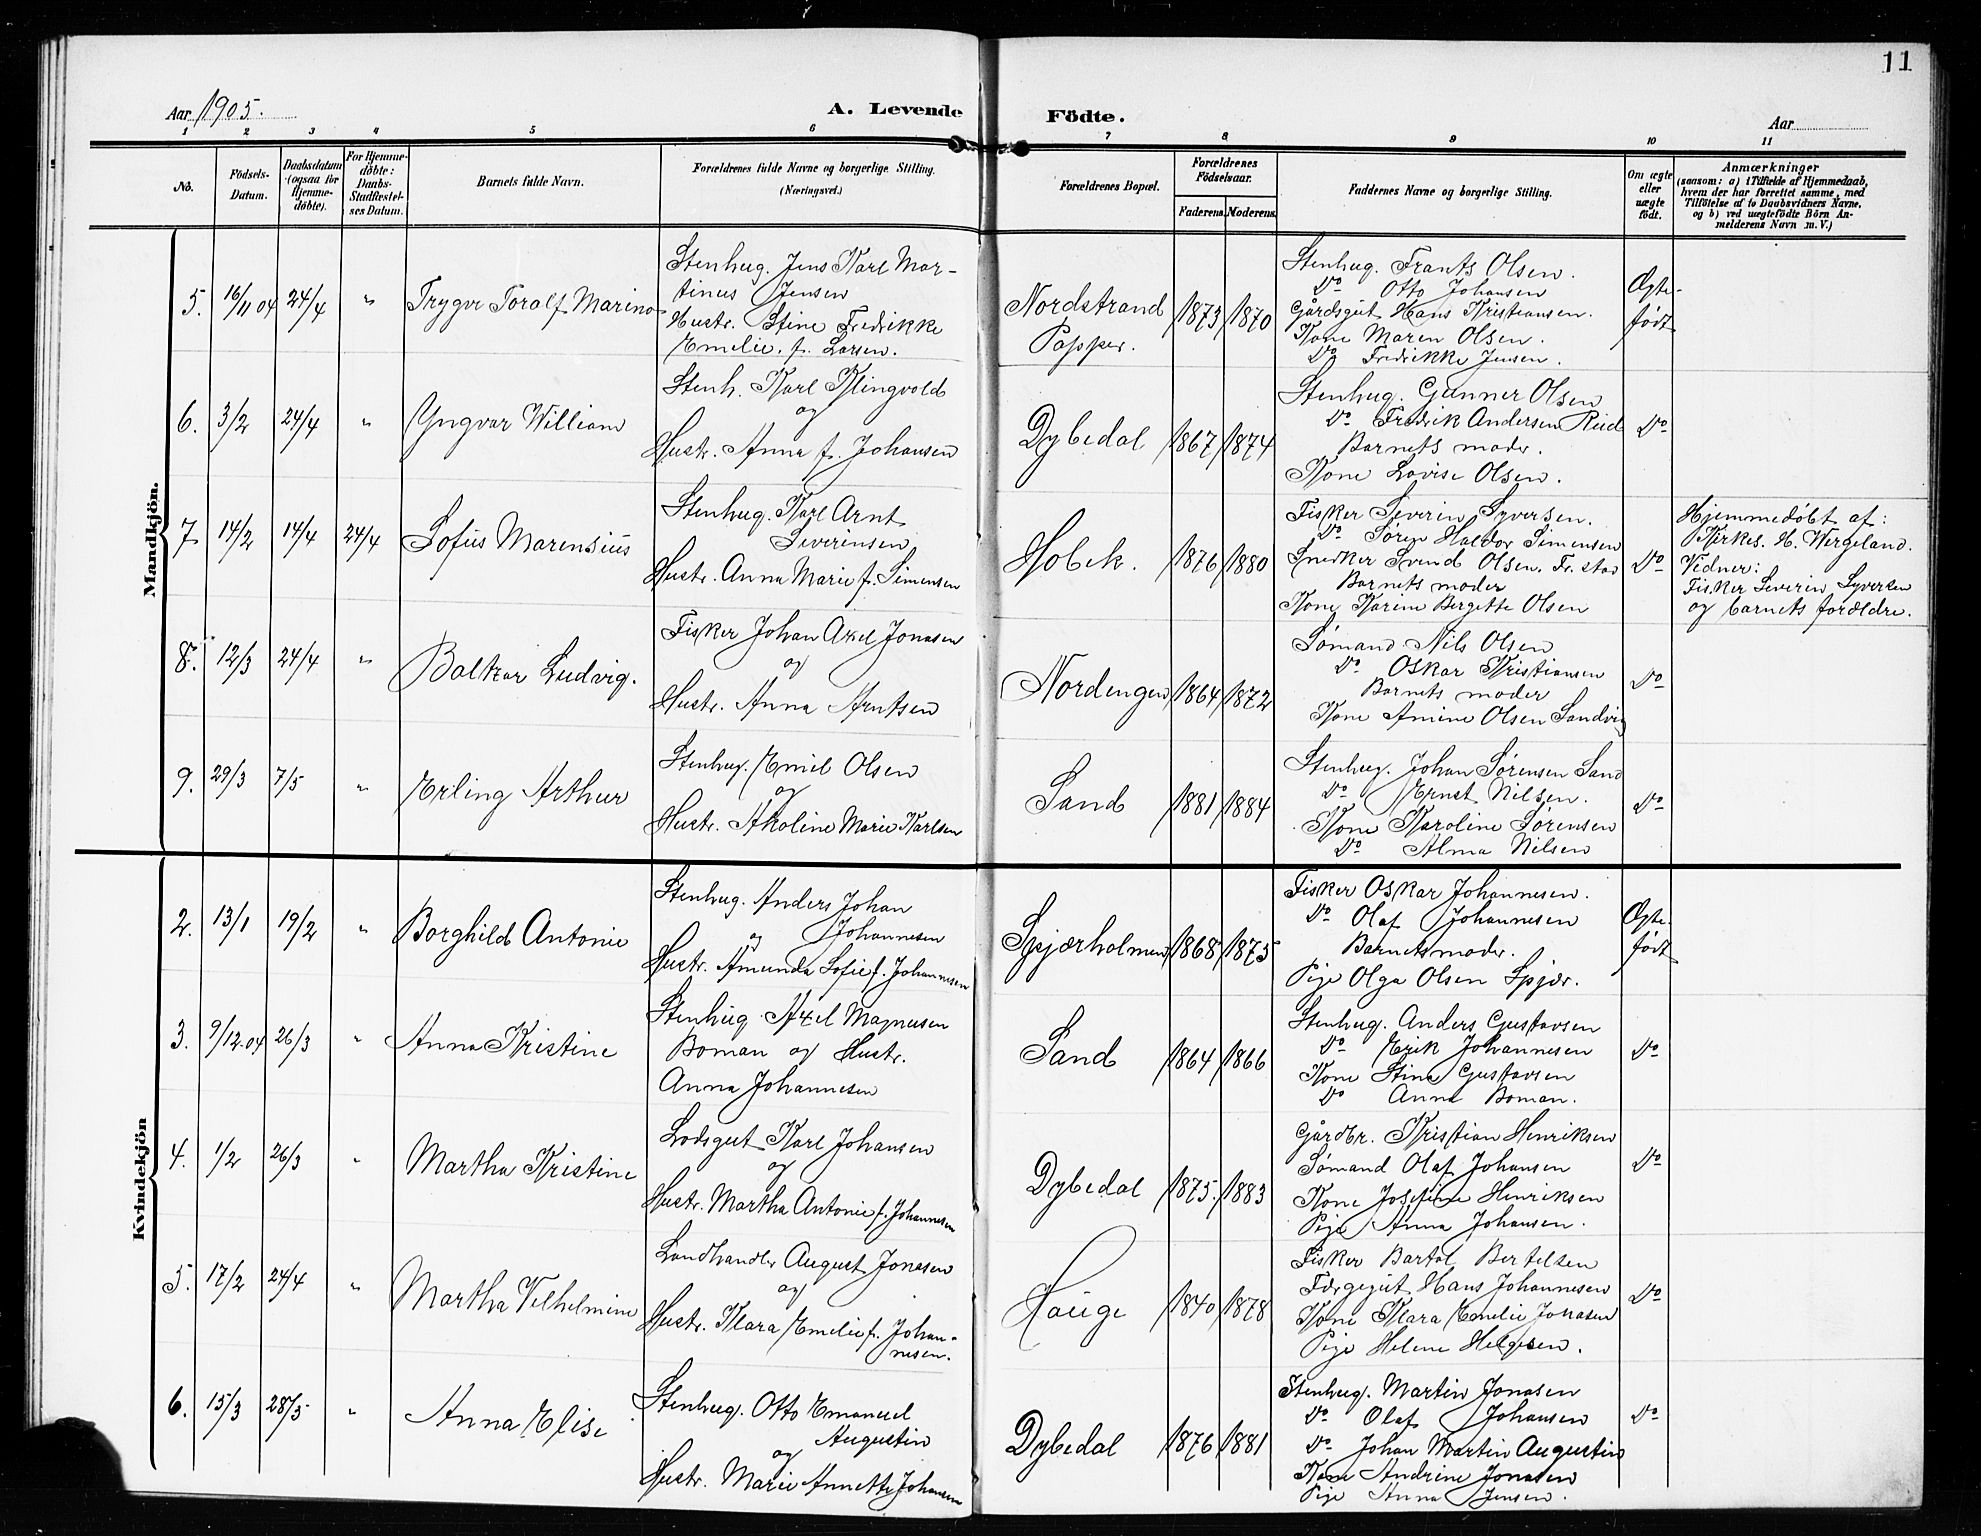 11
Aar 1905.
A. Levende Födte.
Aar
1 2 3 4 5 6 7 8 9 10 11
No.
Födsels-Datum.
Daabsdatum (ogsaa för Hjemme-döbte).
For Hjemme-döbte: Daabs-Stadfæstel-ses Datum.
Barnets fulde Navn.
Forældrenes fulde Navne og borgerlige Stilling. (Næringsvei.)
Forældrenes Bopæl.
Forældrenes Födselsaar.
Faderens. Moderens.
Faddernes Navne og borgerlige Stilling.
Om ægte eller uægte födt.
Anmærkninger
(saasom: a) i Tilfælde af Hjemmedaab, hvem der har forrettet samme, med Tilföielse af to Daabsvidners Navne, og b) ved uægtefödte Börn An-melderens Navn m. V.)
Mandkjön.
5. 16/11 04 24/4 " Trygve Toralf Marino
Stenhug. Jens Karl Mar-
tinus Jensen
Hustr. Stine Fredrikke
Emelie. f. Larsen.
Nordstrand
Papper.
1873 1870
Stenhug. Frants Olsen.
Do Otto Johansen
Gårdsgut Hans Kristiansen.
Kone Maren Olsen.
Do Fredrikke Jensen.
Ægte-
født
6. 3/2 24/4 " Yngvar William
Stenh. Karl Klingvold
og
Hustr. Anna f. Johansen
Dybedal 1867 1874
Stenhug. Gunner Olsen
Do Fredrik Andersen Reid
Barnets moder.
Kone Lovise Olsen.
Do
7 14/2 14/4 24/4 Sofus Marensius
Stenhug. Karl Arnt
Severinsen
Hustr. Anna Marie f. Simensen
Holek. 1876 1880
Fisker Severin Syversen.
Do Søren Haldor Simensen
Snedker Svend Olsen. Fr.stad
Barnets moder
Kone Karine Bergette Olsen
Do
Hjemmedøbt af:
Kirkes. H. Wergeland.
Vidner:
Fisker Severin Syversen
og barnets forældre.
8. 12/3 24/4 " Baltzar Ludvig.
Fisker Johan Axel Jonasen
og
Hustr. Anna Arntsen
Nordengen 1864 1872
Sømand Nils Olsen
Do Oskar Kristiansen
Barnets moder
Kone Amine Olsen Sandvig
Do
9. 29/3 7/5 " Erling Arthur
Stenhug. Emil Olsen
og
Hustr. Akoline Marie Karlsen
Sand 1881 1884
Stenhug. Johan Sørensen Sand
Do Ernst Nilsen.
Kone Karoline Sørensen
Do Alma Nilsen
Do
Kvindekjön
2. 13/1 19/2 " Borghild Antonie
Stenhug. Anders Johan
og Johannesen
Hustr. Amunda Sofie f. Johannesen
Spjærholmen 1868 1875
Fisker Oskar Johannesen.
Do Olaf Johannesen
Barnets moder.
Pige Olga Olsen Spjær.
Ægte-
født
3. 9/12.04 26/3 " Anna Kristine
Stenhug. Axel Magnusen
Boman og Hustr.
Anna Johannesen
Sand 1864 1866
Stenhug. Anders Gustavsen
Do Erik Johannesen
Kone Stina Gustavsen
Do Anna Boman.
Do
4. 1/2 26/3 " Martha Kristine
Lodsgut Karl Johansen
og
Hustr. Martha Antonie f. Johannesen
Dybedal 1875. 1883
Gårdbr. Kristian Henriksen
Sømand Olaf Johansen
Kone Josefine Henriksen
Pige Anna Johansen.
Do
5. 17/2 24/4 " Martha Vilhelmine
Landhandler August Jonasen
og
Hustr. Klara Emelie f. Johan-
nesen.
Hauge 1840 1878
Fisker Bartol Bertelsen
Færgegut Hans Johannesen
Kone Klara Emelie Jonasen
Pige Helene Helgesen.
Do
6. 15/3 28/5 " Anna Elise
Stenhug. Otto Emanuel
Augustin
og
Hustr. Marie Annette Johansen
Dybedal 1876 1881
Stenhug. Martin Jonasen
Do Olaf Johansen
Do Johan Martin Augustin
Kone Andrine Jonasen
Pige Anna Jensen.
Do